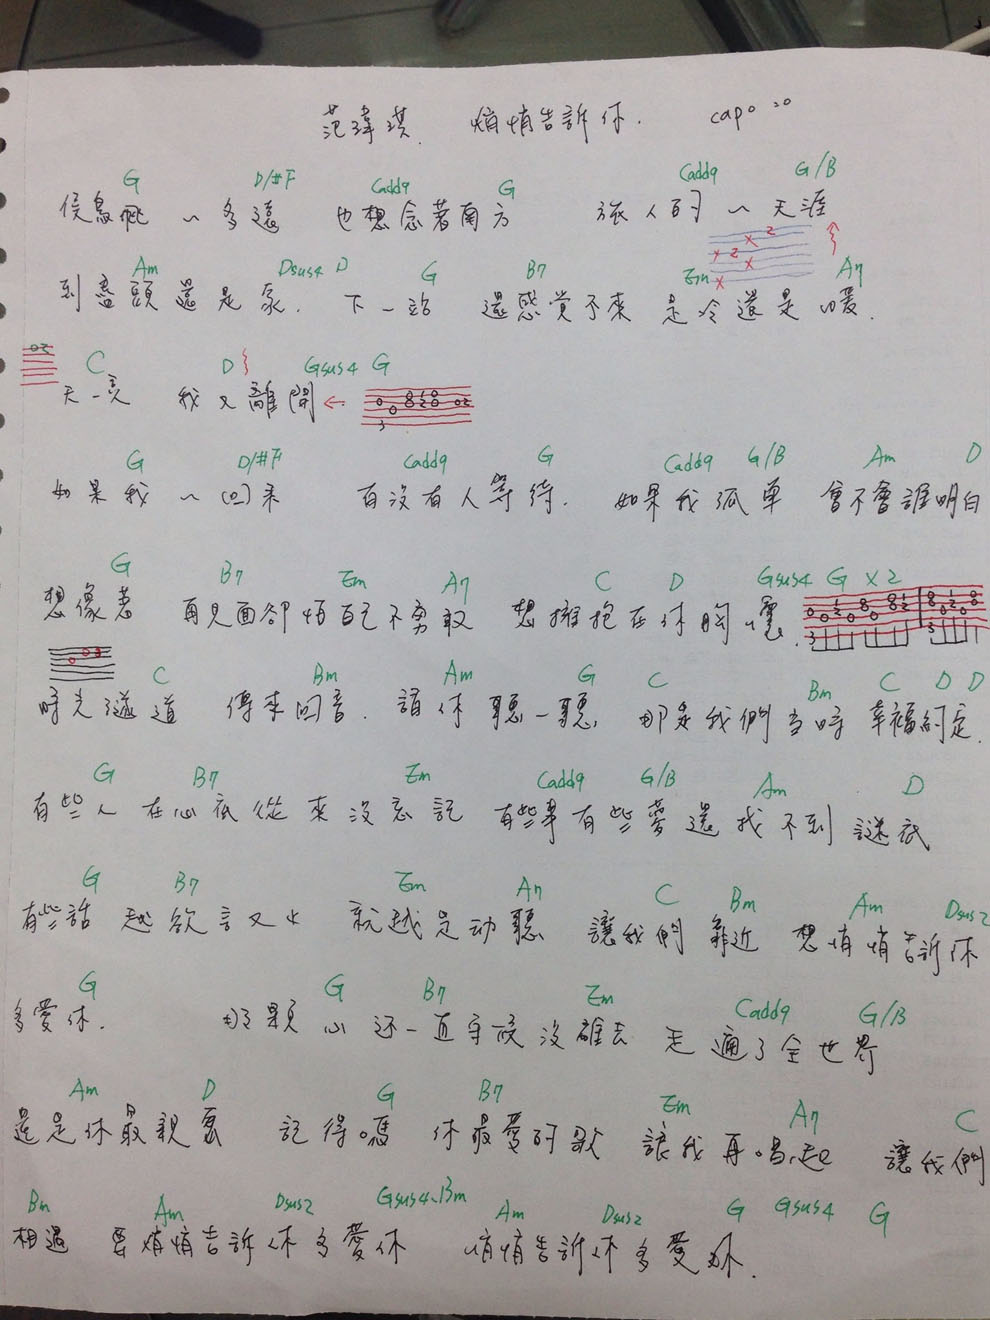 范瑋琪 悄悄告訴你. capo=20
G D/#F Cadd9 G Cadd9 G/B
候鳥飛 ~ 多遠 也想念著南方 旅人的 ~ 天涯
Am Dsus4 D G B7 Em A7
到盡頭還是家. 下一站 還感覺不來 是冷還是暖.
C D Gsus4 G
天一亮 我又離開
G D/#F Cadd9 G Cadd9 G/B Am D
如果我 ~ 回來 有沒有人等待. 如果我孤單 會不會誰明白
G B7 Em A7 C D Gsus4 G X2
想像著 再見面卻怕自己不勇敢 想擁抱在你胸懷.
C Bm Am G C Bm C D D
時光隧道 傳來回音. 請你聽一聽 那是我們當時幸福約定.
G B7 Em Cadd9 G/B Am D
有些人在心底從來沒忘記 有些事有些夢還找不到謎底
G B7 Em A7 C Bm Am Dsus2
有些話 越欲言又止 就越是动聽 讓我們靠近 想悄悄告訴你
G G B7 Em Cadd9 G/B
多愛你. 那顆心还一直守候沒離去 走遍了全世界
Am D G B7 Em A7 C
還是你最親密 記得嗎 你最愛的歌 讓我再唱起 讓我們
Bm Am Dsus2 Gsus4-Bm Am Dsus2 G Gsus4 G
相遇 要悄悄告訴你多愛你 悄悄告訴你多愛你.